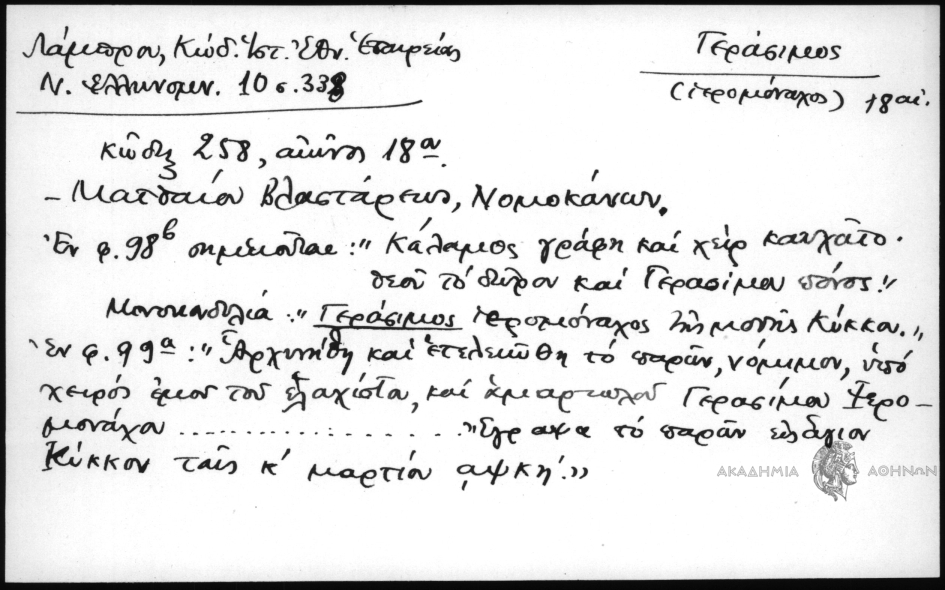 Λάμπρου, Κώδ. Ἱστ. Ἐθν. Ἑταιρείας
Ν. Ἑλληνομν. 10 σ. 338
Γεράσιμος
(ἱερομόναχος) 18 αἰ.
κῶδιξ 258, αἰῶνος 18ου.
– Ματθαίου Βλαστάρεως, Νομοκάνων.
Ἐν φ. 98β σημειοῦται: "Κάλαμος γράφη καὶ χεὶρ καυχᾶτο·
θεοῦ τὸ δῶρον καὶ Γερασίμου πόνος."
Μονοκονδυλιά: "Γεράσιμος ἱερομόναχος τῆς μονῆς Κύκκου."
Ἐν φ. 99α: "Ἀρχινήθη καὶ ἐτελειώθη τὸ παρὸν, νόμιμον, ὑπὸ
χειρὸς ἐμοῦ τοῦ ἐλαχίστου, καὶ ἁμαρτωλοῦ Γερασίμου Ἱερο-
μονάχου .................. "ἔγραψα τὸ παρὸν εἰς ἅγιον
Κύκκον ταῖς κ' μαρτίου ͵αψκη'."
ΑΚΑΔΗΜΙΑ ΑΘΗΝΩΝ